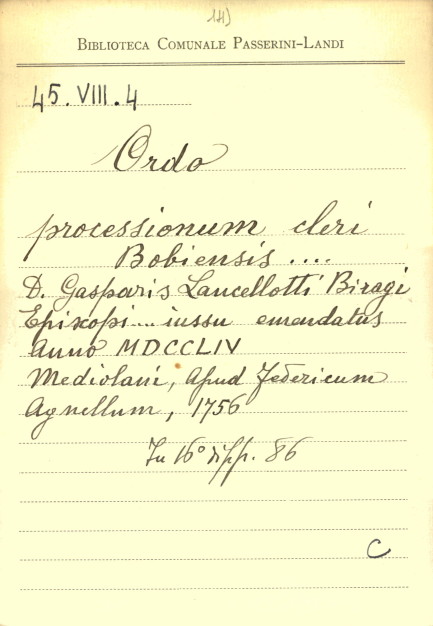 BIBLIOTECA COMUNALE PASSERINI-LANDI
45.VIII.4
Ordo
processionum cleri
Bobiensis ....
D. Gasparis Lancellotti Biragi
Episcopi... iussu emendatus
Anno MDCCLIV
Mediolani, Apud Federicum
Agnellum, 1756
In 16° di pp. 86
C